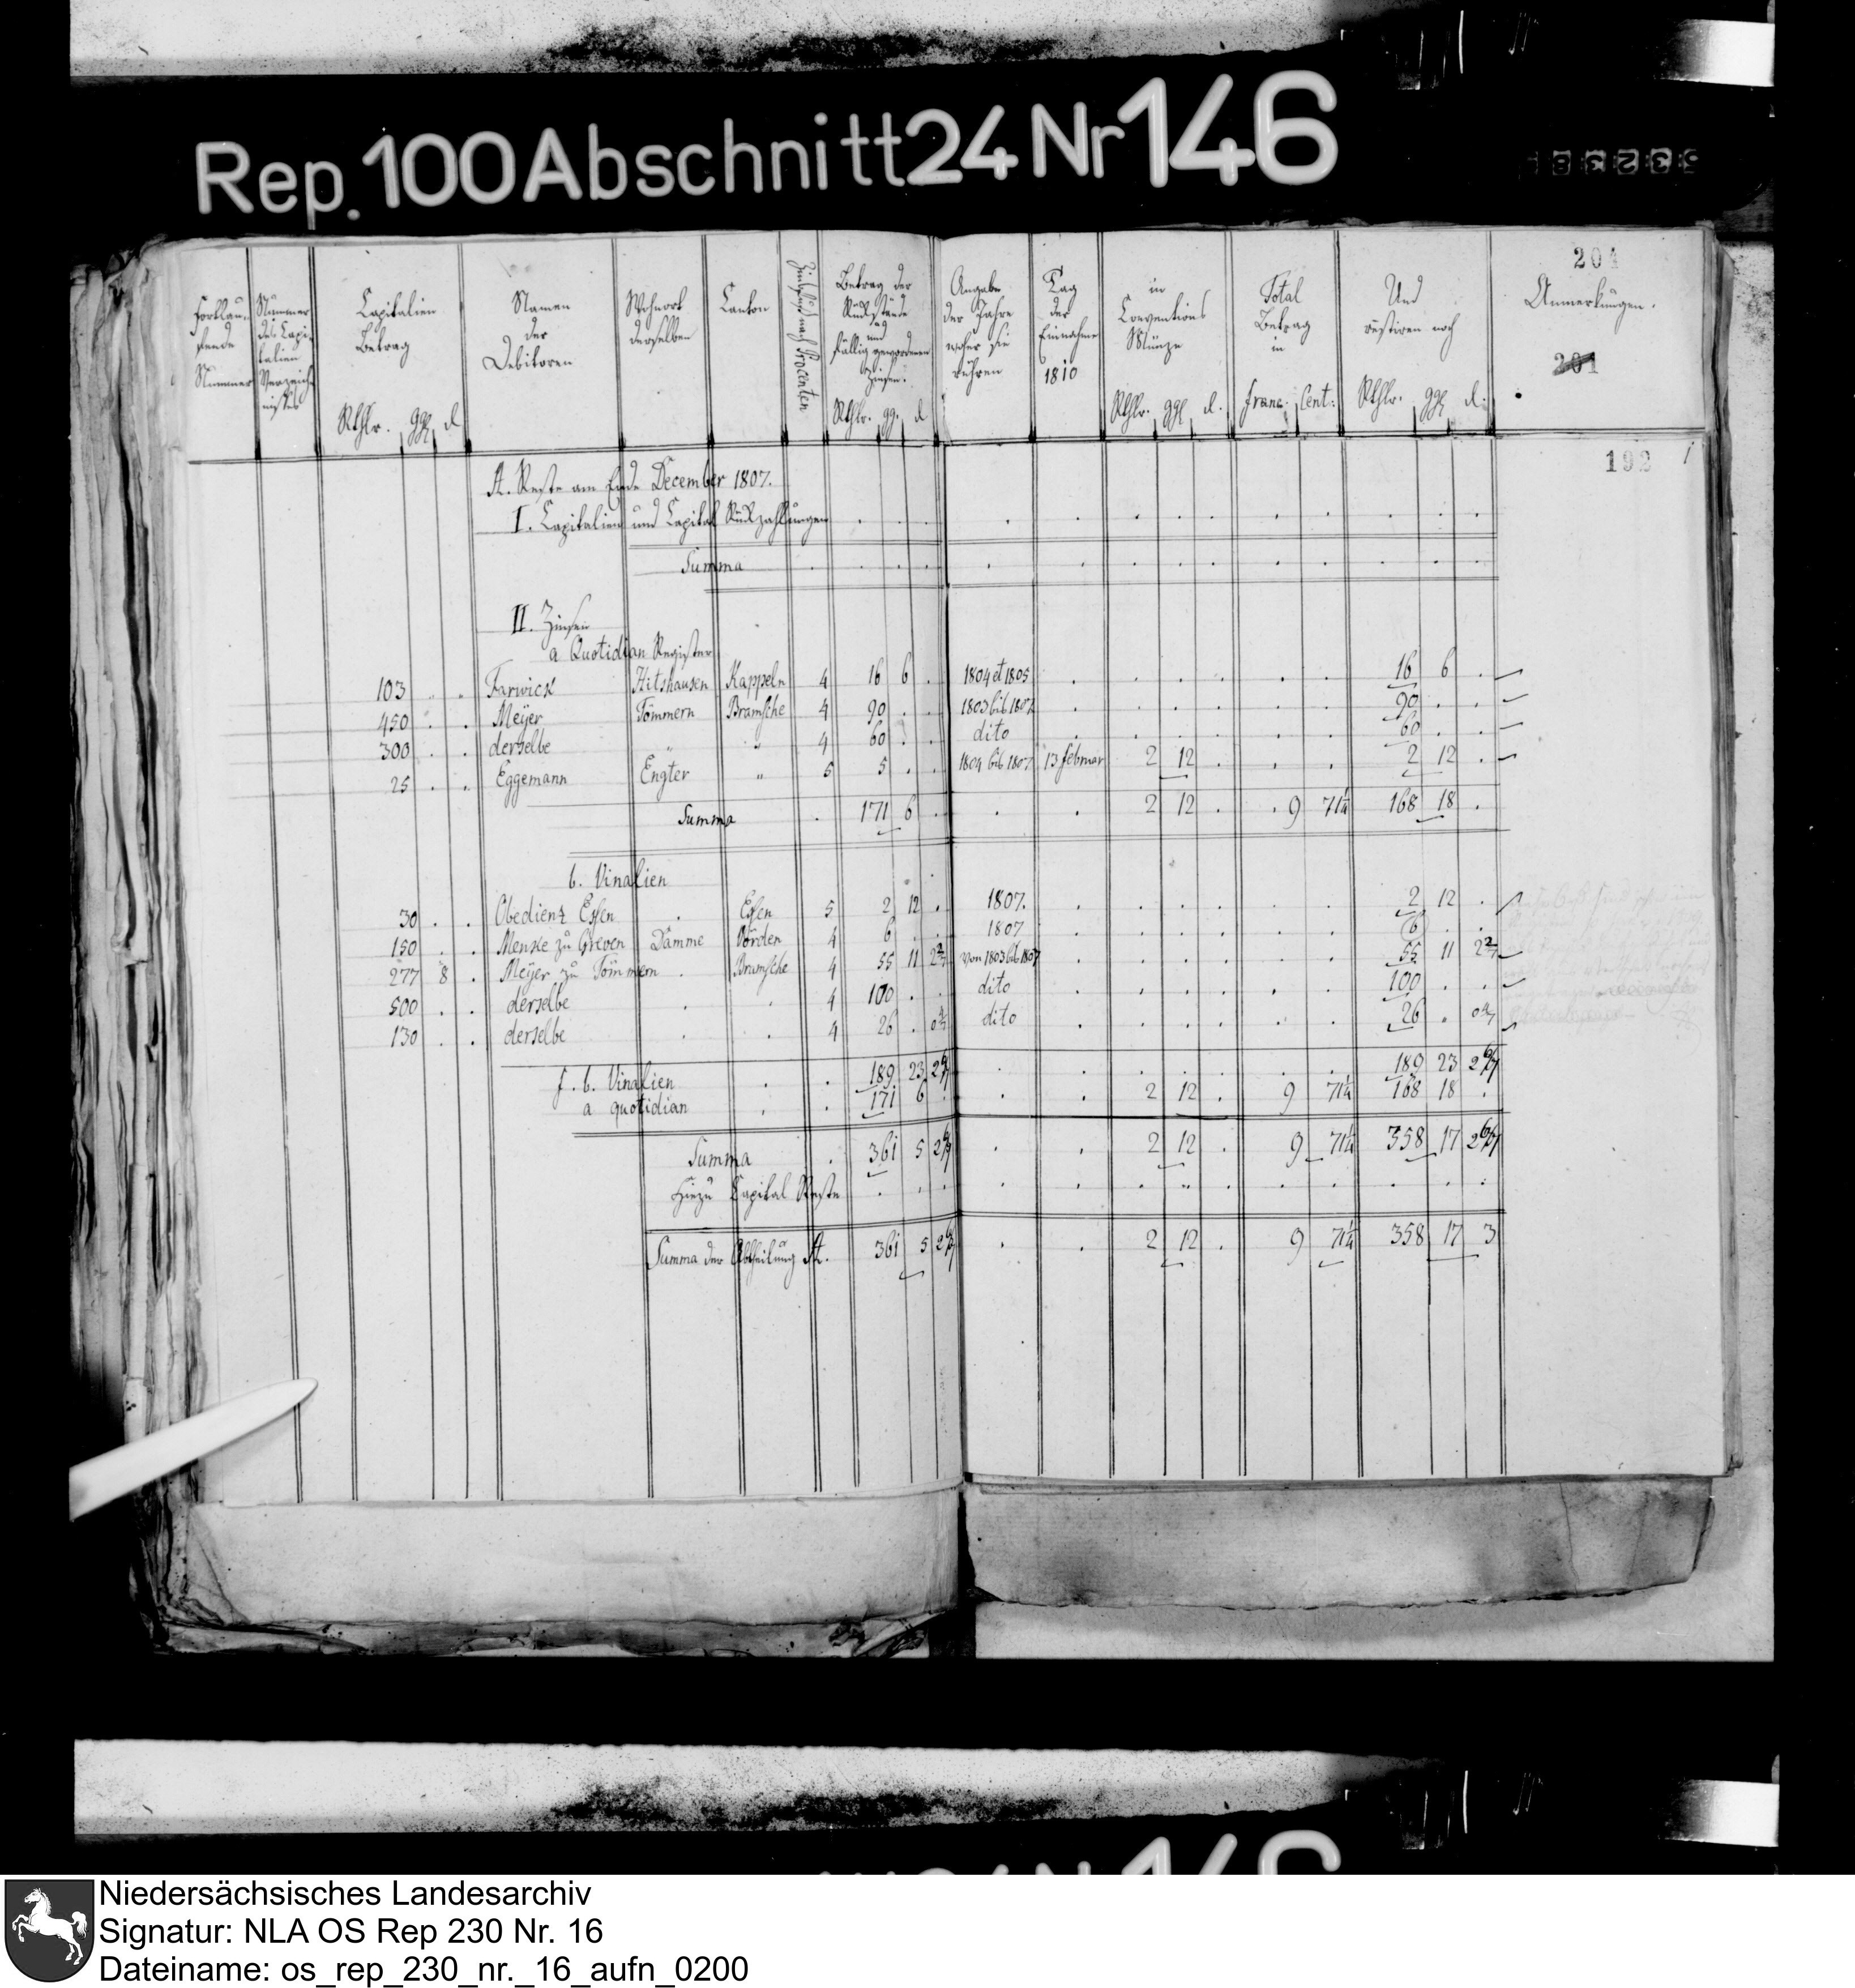 Rep. 100 Abschnitt 24 Nr 146
204
Fortlau- fende Nummer | Nummer des Capi- talien Verzeich- nisses | Capitalien Betrag Rthlr. ggl d | Namen der Debitoren | Wohnort derselben | Canton | Zinsfuß nach Procenten | Betrag der Rückstände und fällig gewordenen Zinsen. Rthlr. gg. d | Angabe der Jahre woher sie rühren | Tag der Einnahme 1810 | in Conventions Münze Rthlr. ggl d. | Total Betrag in franc. Cent: | Und restiren noch Rthlr. ggl d: | Anmerkungen.
201
192
A. Reste am Ende December 1807.
I. Capitalien und Capital Rückzahlungen
Summa
II. Zinsen
a Quotidian Register
103 . . Farwick Hitshausen Kappeln 4 16 6 . 1804 et 1805 . . . . . . 16 6 .
450 . . Meÿer Tömmern Bramsche 4 90 . . 1803 bis 1807 . . . . . . 90 . .
300 . . derselbe " " 4 60 . . dito . . . . . . 60 . .
25 . . Eggemann Engter " 5 5 . . 1804 bis 1807 13 februar 2 12 . . . 2 12 .
Summa . 171 6 . . . 2 12 . . 9 71¼ 168 18 .
b. Vinalien
30 . . Obedienz Essen . Essen 5 2 12 . 1807. . . . . . . 2 12 .
150 . . Menke zu Greven Damme Vörden 4 6 . . 1807 . . . . . . 6 . .
277 8 . Meÿer zu Tömmern . Bramsche 4 55 11 2 2/7 von 1803 bis 1807 . . . . . . 55 11 2 2/7
500 . . derselbe . . 4 100 . . dito . . . . . . 100 . .
130 . . derselbe . . 4 26 . 0 4/7 dito . . . . . . 26 . 0 4/7
S. b. Vinalien . . 189 23 2 6/7 . . . . . . . 189 23 2 6/7
a quotidian . . 171 6 . . . 2 12 . 9 71¼ 168 18 .
Summa . 361 5 2 6/7 . . 2 12 . 9 71¼ 358 17 2 6/7
Hiezu Capital Reste . . . . . . . . . . . . .
Summa der Abtheilung A. 361 5 2 6/7 . . 2 12 . 9 71¼ 358 17 3
Niedersächsisches Landesarchiv
Signatur: NLA OS Rep 230 Nr. 16
Dateiname: os_rep_230_nr._16_aufn_0200